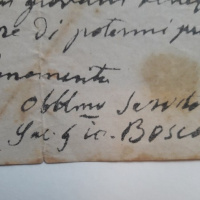 giovani
re di potermi pr
namente
Obblmo Servito
Sac Gio. Bosco